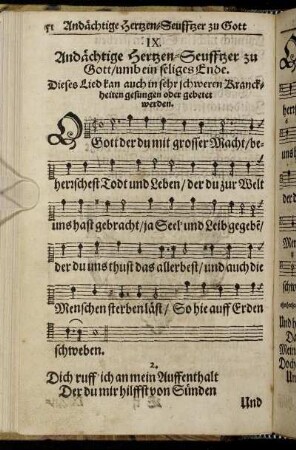 Andächtige Hertzen-Seufftzer zu Gott
IX.
Andächtige Hertzen-Seufftzer zu
Gott/umb ein seliges Ende.
Dieses Lied kan auch in sehr schweren Kranck-
heiten gesungen oder gebetet
werden.
O Gott der du mit grosser Macht/be-
herrschest Todt und Leben/der du zur Welt
uns hast gebracht/ja Seel und Leib gegebẽ/
der du uns thust das allerbest/und auch die
Menschen sterben läst/So hie auff Erden
schweben.
2.
Dich ruff ich an mein Auffenthalt
Der du mir hilffst von Sünden
Und